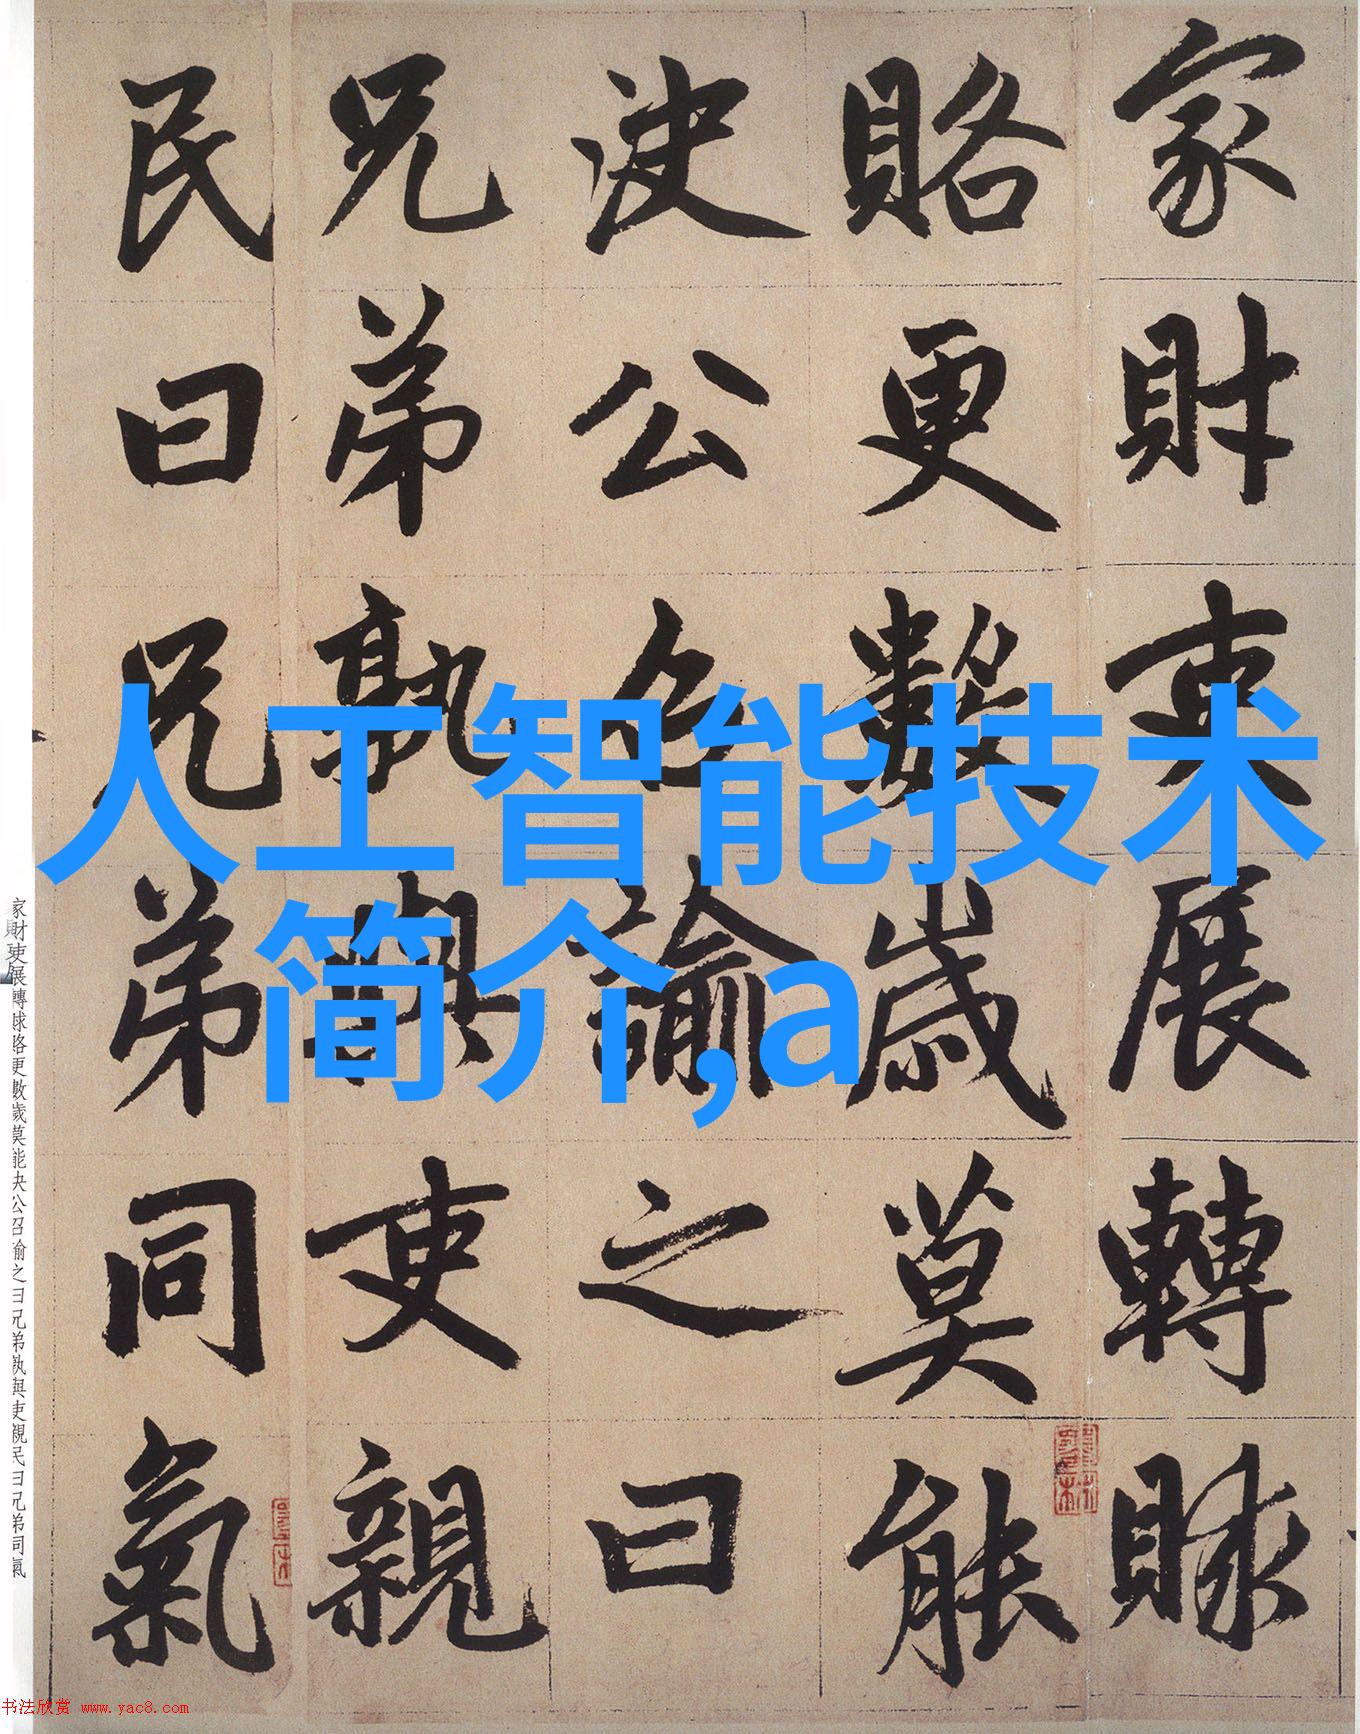 家財吏展轉賕
賂更數歲莫能
决公召諭之曰
兄弟孰與吏親
民曰兄弟同氣
人工智能技术
简介,a
家財吏展轉賕賂更數歲莫能决公召諭之曰兄弟孰與吏親民曰兄弟同氣
书法欣赏 www.yac8.com